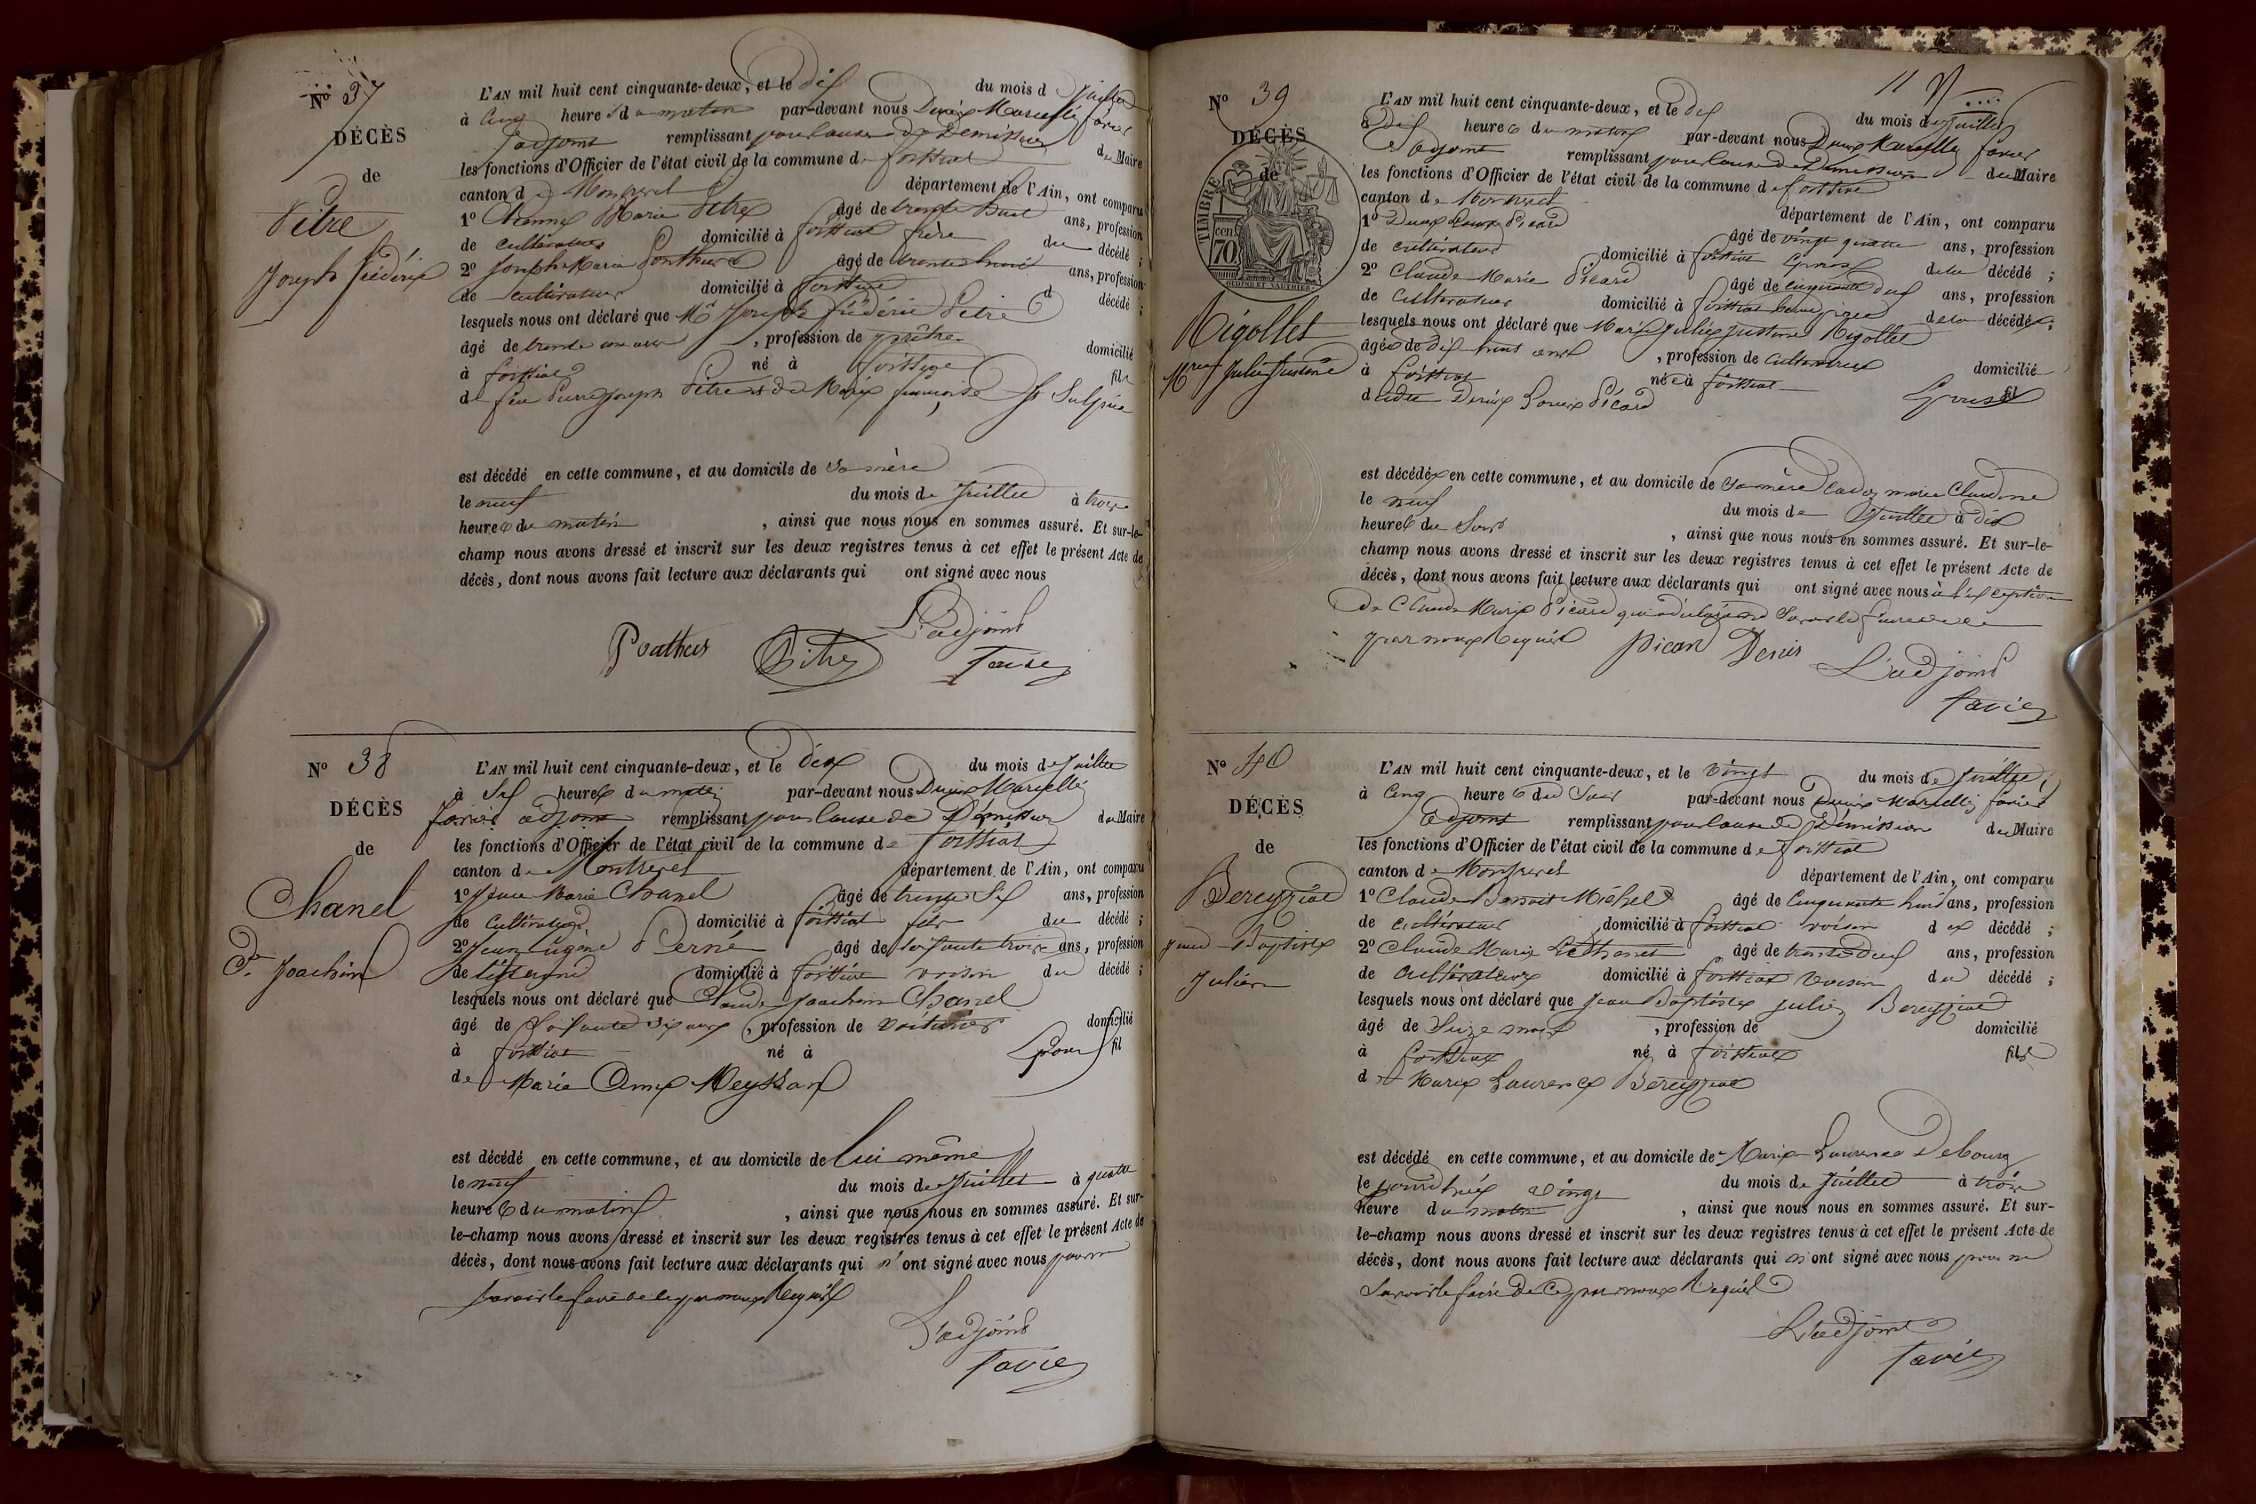 Nº 37
DÉCÈS
de
Pitre
Joseph Frédéric
L'AN mil huit cent cinquante-deux, et le dix du mois d juillet
à cinq heure s du matin par-devant nous Denis Marcelle favier
l'adjoint remplissant pour cause de Démission du Maire
les fonctions d'Officier de l'état civil de la commune de foissiat
canton de Montrevel département de l'Ain, ont comparu
1º Marie Pitre âgé de trente huit ans, profession
de cultivateur domicilié à foissiat frère du décédé ;
2º Joseph Marie Ponthus âgé de trente ans, profession
de cultivateur domicilié à foissiat d décédé ;
lesquels nous ont déclaré que Mr Joseph frédéric Pitre
âgé de trente un ans , profession de prêtre domicilié
à foissiat né à foissiat fils
de feu Pierre Joseph Pitre & de Marie françoise St Sulpice
est décédé en cette commune, et au domicile de sa mère
le neuf du mois de juillet à trois
heures du matin , ainsi que nous nous en sommes assuré. Et sur-le-
champ nous avons dressé et inscrit sur les deux registres tenus à cet effet le présent Acte de
décès, dont nous avons fait lecture aux déclarants qui ont signé avec nous
L'adjoint
Ponthus Pitre favier
Nº 38
DÉCÈS
de
Chanel
Joachim
L'AN mil huit cent cinquante-deux, et le dix du mois de juillet
à six heures du matin par-devant nous Denis Marcelle
favier adjoint remplissant pour cause de Démission du Maire
les fonctions d'Officier de l'état civil de la commune de foissiat
canton de Montrevel département de l'Ain, ont comparu
1º Marie Chanel âgé de trente six ans, profession
de cultivateur domicilié à foissiat fils du décédé ;
2º Jean Eugène Perne âgé de soixante trois ans, profession
de tisserand domicilié à foissiat voisin du décédé ;
lesquels nous ont déclaré que Claude Joachim Chanel
âgé de soixante dix ans , profession de voiturier domicilié
à foissiat né à époux fil
de Marie Anne
est décédé en cette commune, et au domicile de lui même
le neuf du mois de juillet à quatre
heures du matin , ainsi que nous nous en sommes assuré. Et sur-
le-champ nous avons dressé et inscrit sur les deux registres tenus à cet effet le présent Acte de
décès, dont nous avons fait lecture aux déclarants qui n'ont signé avec nous pour ne
savoir le faire de ce par nous Requis
L'adjoint
favier
11
Nº 39
DÉCÈS
de
TIMBRE
70 cen
Rigollet
Mrie Julie Justine
L'AN mil huit cent cinquante-deux, et le dix du mois de juillet
à dix heures du matin par-devant nous Denis Marcelle favier
adjoint remplissant pour cause de Démission du Maire
les fonctions d'Officier de l'état civil de la commune de foissiat
canton de Montrevel département de l'Ain, ont comparu
1º Denis Louis Picard âgé de vingt quatre ans, profession
de cultivateur domicilié à foissiat époux de la décédé ;
2º Claude Marie Picard âgé de cinquante dix ans, profession
de cultivateur domicilié à foissiat beau père de la décédé ;
lesquels nous ont déclaré que Marie Julie Justine Rigollet
âgée de dix huit ans , profession de cultivatrice domicilié
à foissiat née à foissiat épouse fil
dudit Denis Louis Picard
est décédée en cette commune, et au domicile de sa mère marie Claudine
le neuf du mois de juillet à dix
heures du soir , ainsi que nous nous en sommes assuré. Et sur-le-
champ nous avons dressé et inscrit sur les deux registres tenus à cet effet le présent Acte de
décès, dont nous avons fait lecture aux déclarants qui ont signé avec nous à l'exception
de Claude Marie Picard qui a déclaré ne savoir le faire de ce
par nous Requis Picard Denis L'adjoint
favier
Nº 40
DÉCÈS
de
Bereyziat
Jean Baptiste
Julien
L'AN mil huit cent cinquante-deux, et le vingt du mois de juillet
à cinq heures du soir par-devant nous Denis Marcelle favier
adjoint remplissant pour cause de Démission du Maire
les fonctions d'Officier de l'état civil de la commune de foissiat
canton de Montrevel département de l'Ain, ont comparu
1º Claude Benoit Michel âgé de cinquante huit ans, profession
de cultivateur domicilié à foissiat voisin d décédé ;
2º Claude Marie âgé de trente deux ans, profession
de cultivateur domicilié à foissiat voisin du décédé ;
lesquels nous ont déclaré que Jean Baptiste Julien Bereyziat
âgé de seize mois , profession de domicilié
à foissiat né à foissiat fils
de Marie Laurence Bereyziat
est décédé en cette commune, et au domicile de Marie Laurence Debourg
le vingt du mois de juillet à trois
heure du matin , ainsi que nous nous en sommes assuré. Et sur-
le-champ nous avons dressé et inscrit sur les deux registres tenus à cet effet le présent Acte de
décès, dont nous avons fait lecture aux déclarants qui n'ont signé avec nous pour ne
savoir le faire de ce par nous Requis
L'adjoint
favier